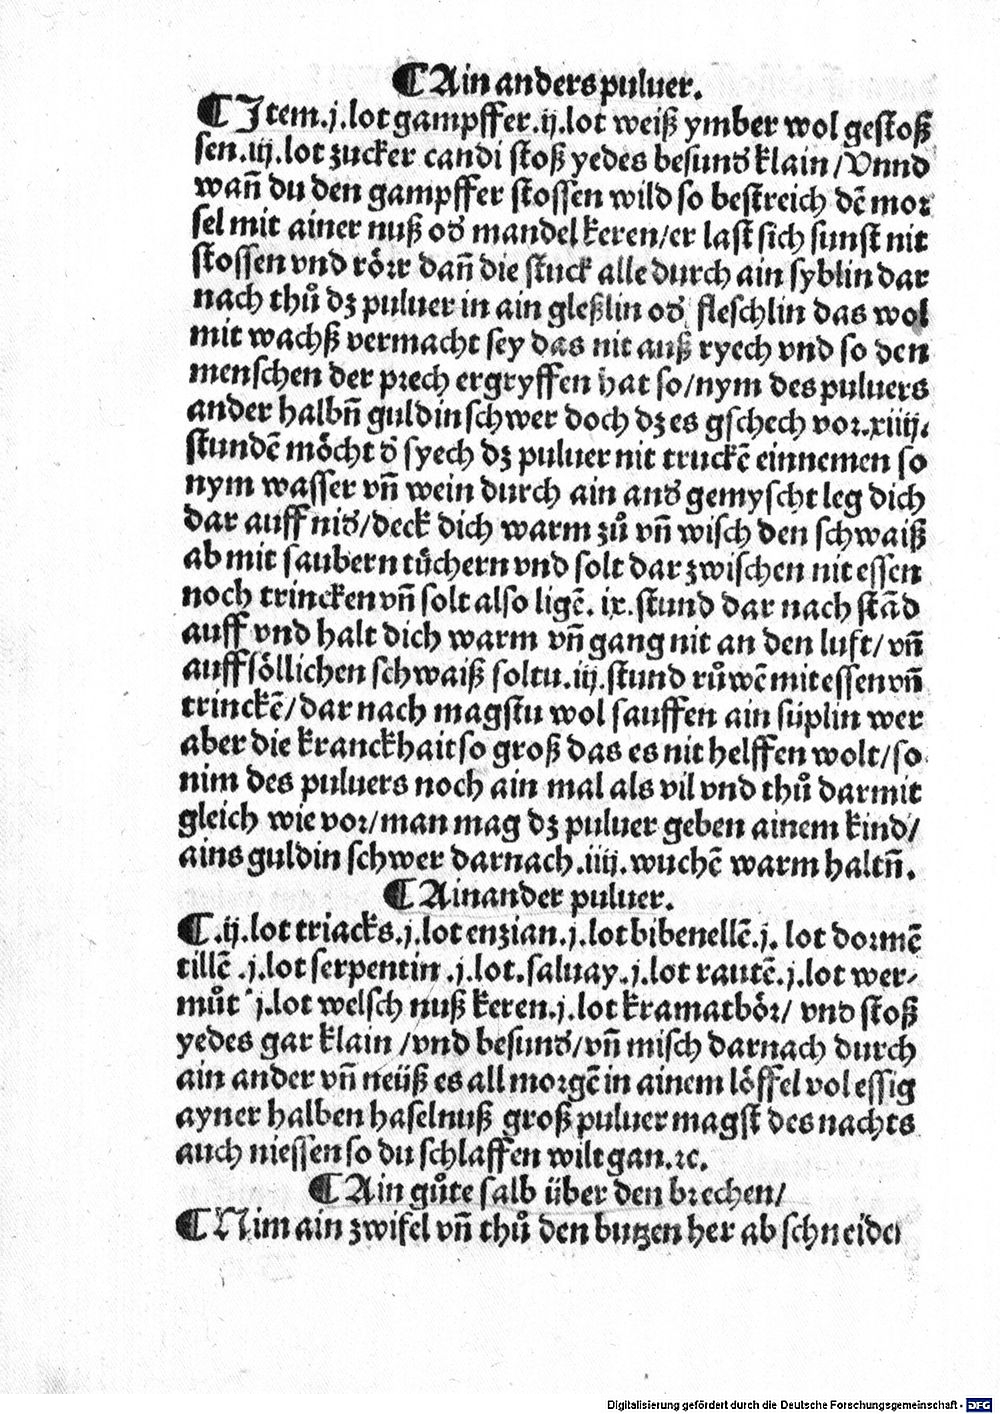 ¶ Ain anders puluer.
¶ Item .j. lot gampffer .ij. lot weiß ymber wol gestoß
sen .iij. lot zucker candi stoß yedes besund̕ klain / Vnnd
wañ du den gampffer stossen wild so bestreich dē moꝛ
sel mit ainer nuß od̕ mandel keren / er last sich sunst nit
stossen vnd röꝛr dañ die stuck alle durch ain syblin dar
nach thuͦ dz puluer in ain gleßlin od̕ fleschlin das wol
mit wachß vermacht sey das nit auß ryech vnd so den
menschen der pꝛech ergryffen hat so / nym des puluers
ander halbñ guldin schwer doch dz es gschech voꝛ .xiiij.
stundē möcht d̕ syech dz puluer nit truckē einnemen so
nym wasser vñ wein durch ain and̕ gemyscht leg dich
dar auff nid̕ / deck dich warm zuͦ vñ wisch den schwaiß
ab mit saubern tüchern vnd solt dar zwischen nit essen
noch trincken vñ solt also ligē. ix. stund dar nach stād
auff vnd halt dich warm vñ gang nit an den luft / vñ
auff söllichen schwaiß soltu .iij. stund ruͦwē mit essen vñ
trinckē / dar nach magstu wol sauffen ain süplin wer
aber die kranckhait so groß das es nit helffen wolt / so
nim des puluers noch ain mal als vil vnd thuͦ darmit
gleich wie voꝛ / man mag dz puluer geben ainem kind /
ains guldin schwer darnach .iiij. wuchē warm haltñ.
¶ Ain ander puluer.
¶ .ij. lot triacks .j. lot enzian .j. lot bibenellē .j. lot doꝛmē
tillē .j. lot serpentin .j. lot. saluay .j. lot rautē .j. lot wer-
muͦt .j. lot welsch nuß keren .j. lot kramatböꝛ / vnd stoß
yedes gar klain / vnd besund̕ / vñ misch darnach durch
ain ander vñ neüß es all moꝛgē in ainem löffel vol essig
ayner halben haselnuß groß puluer magst des nachts
auch niessen so du schlaffen wilt gan. ꝛc.
¶ Ain guͦte salb über den bꝛechen /
¶ Nim ain zwifel vñ thuͦ den butzen her ab schneide
Digitalisierung gefördert durch die Deutsche Forschungsgemeinschaft - DFG